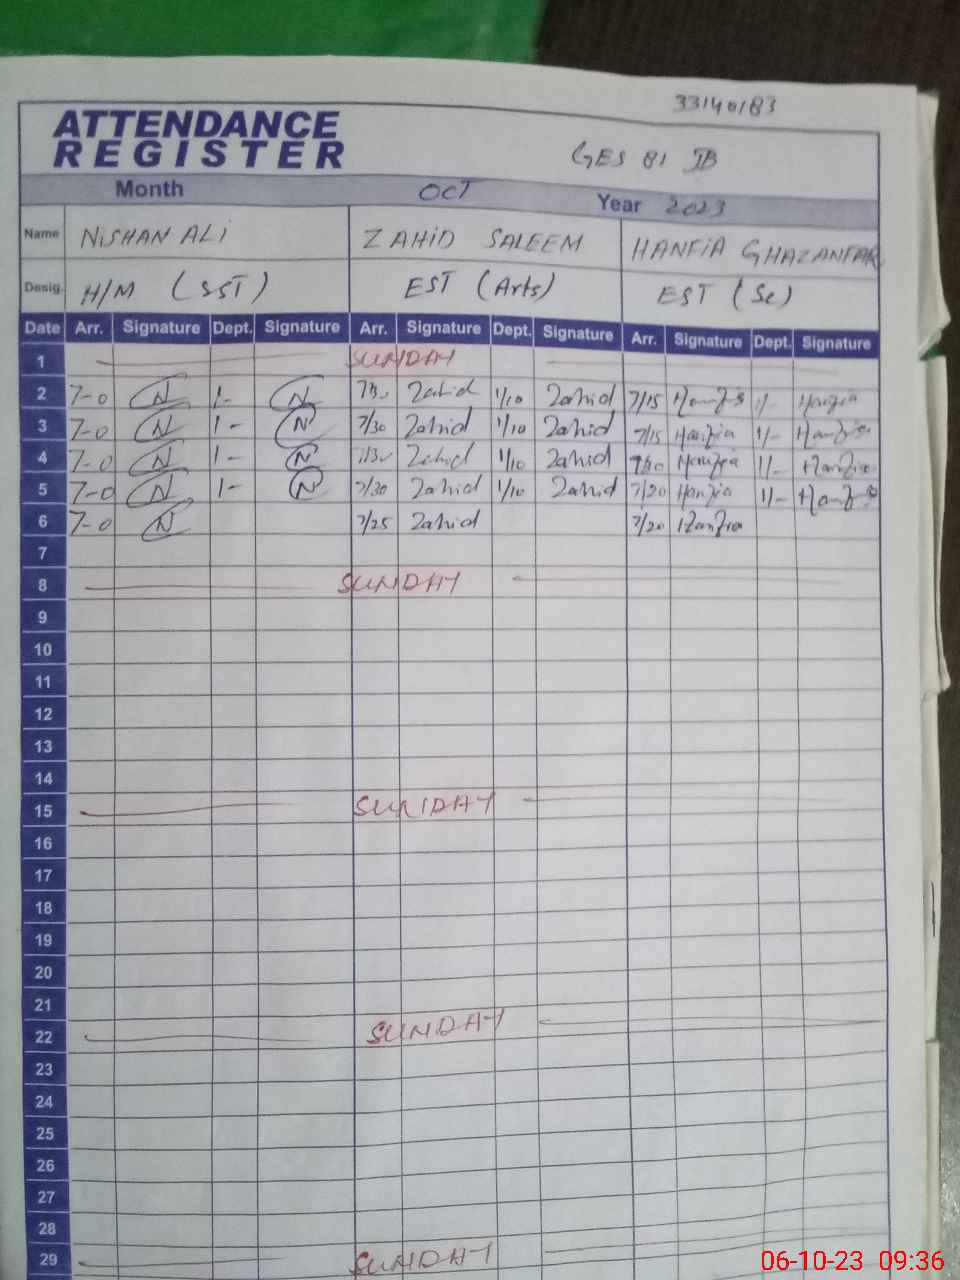 33140183
ATTENDANCE
REGISTER
GES 81 JB
Month OCT Year 2023
Name NISHAN ALI ZAHID SALEEM HANFIA GHAZANFAR
Desig. H/M (SST) EST (Arts) EST (Sc)
Date Arr. Signature Dept. Signature Arr. Signature Dept. Signature Arr. Signature Dept. Signature
1 SUNDAY
2 7-0 N 1- N 7/30 Zahid 1/10 Zahid 7/15 Hanfia 1/- Hanfia
3 7-0 N 1- N 7/30 Zahid 1/10 Zahid 7/15 Hanfia 1/- Hanfia
4 7-0 N 1- N 7/30 Zahid 1/10 Zahid Hanfia 1/- Hanfia
5 7-0 N 1- N 7/30 Zahid 1/10 Zahid 7/20 Hanfia 1/- Hanfia
6 7-0 N 7/25 Zahid 7/20 Hanfia
7
8 SUNDAY
9
10
11
12
13
14
15 SUNDAY
16
17
18
19
20
21
22 SUNDAY
23
24
25
26
27
28
29 SUNDAY
06-10-23 09:36